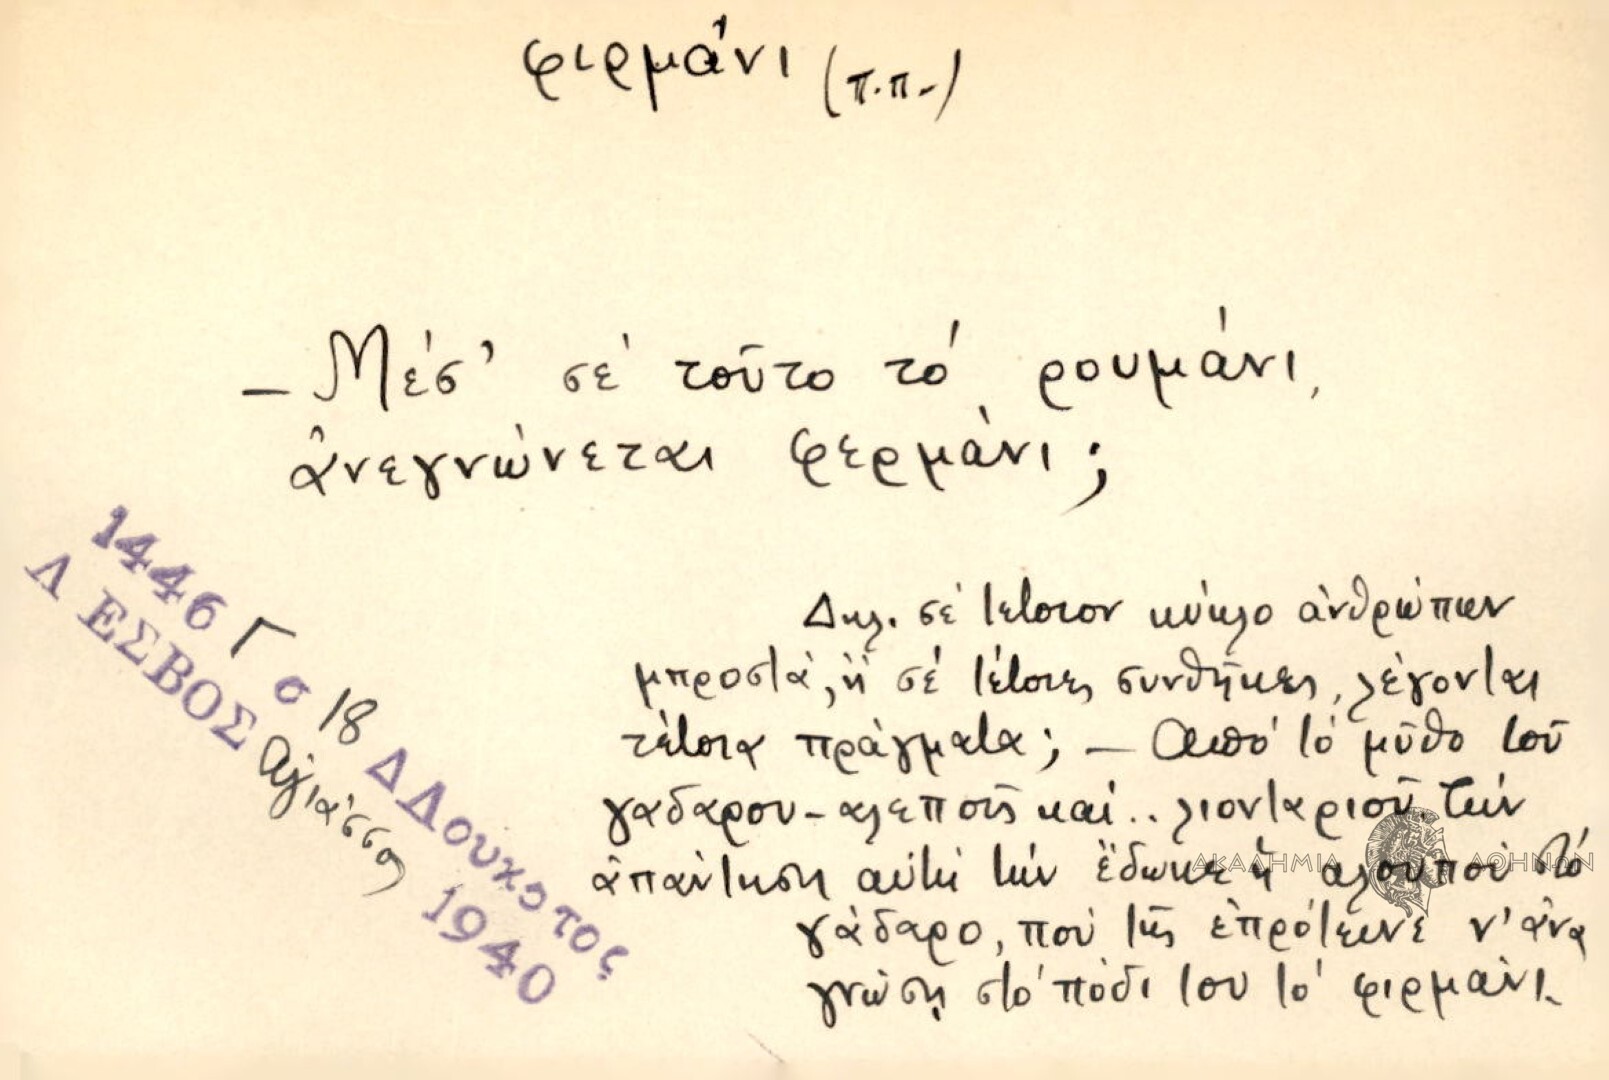 φιρμάνι (π.π.)
– Μέσ' σέ τοῦτο τό ρουμάνι,
ἀνεγνώνεται φερμάνι;
Δηλ. σέ τέτοιον κύκλο ἀνθρώπων
μπροστά, ἤ σέ τέτοιες συνθῆκες, λέγονται
τέτοια πράγματα; – Ἀπό τό μῦθο τοῦ
γαδαρου-αλεποῦς καί.. λιονταριοῦ. Τήν
ἀπάντηση αὐτή τήν ἔδωκε ἡ αλουποῦ στό
γάδαρο, πού τῆς ἐπρότεινε ν' ἀνα
γνώση στό πόδι του τό φιρμάνι.
1446 Γ σ 18 Δ Δουκα τος
ΛΕΣΒΟΣ Ἁγιάσσος 1940
ΑΚΑΔΗΜΙΑ ΑΘΗΝΩΝ